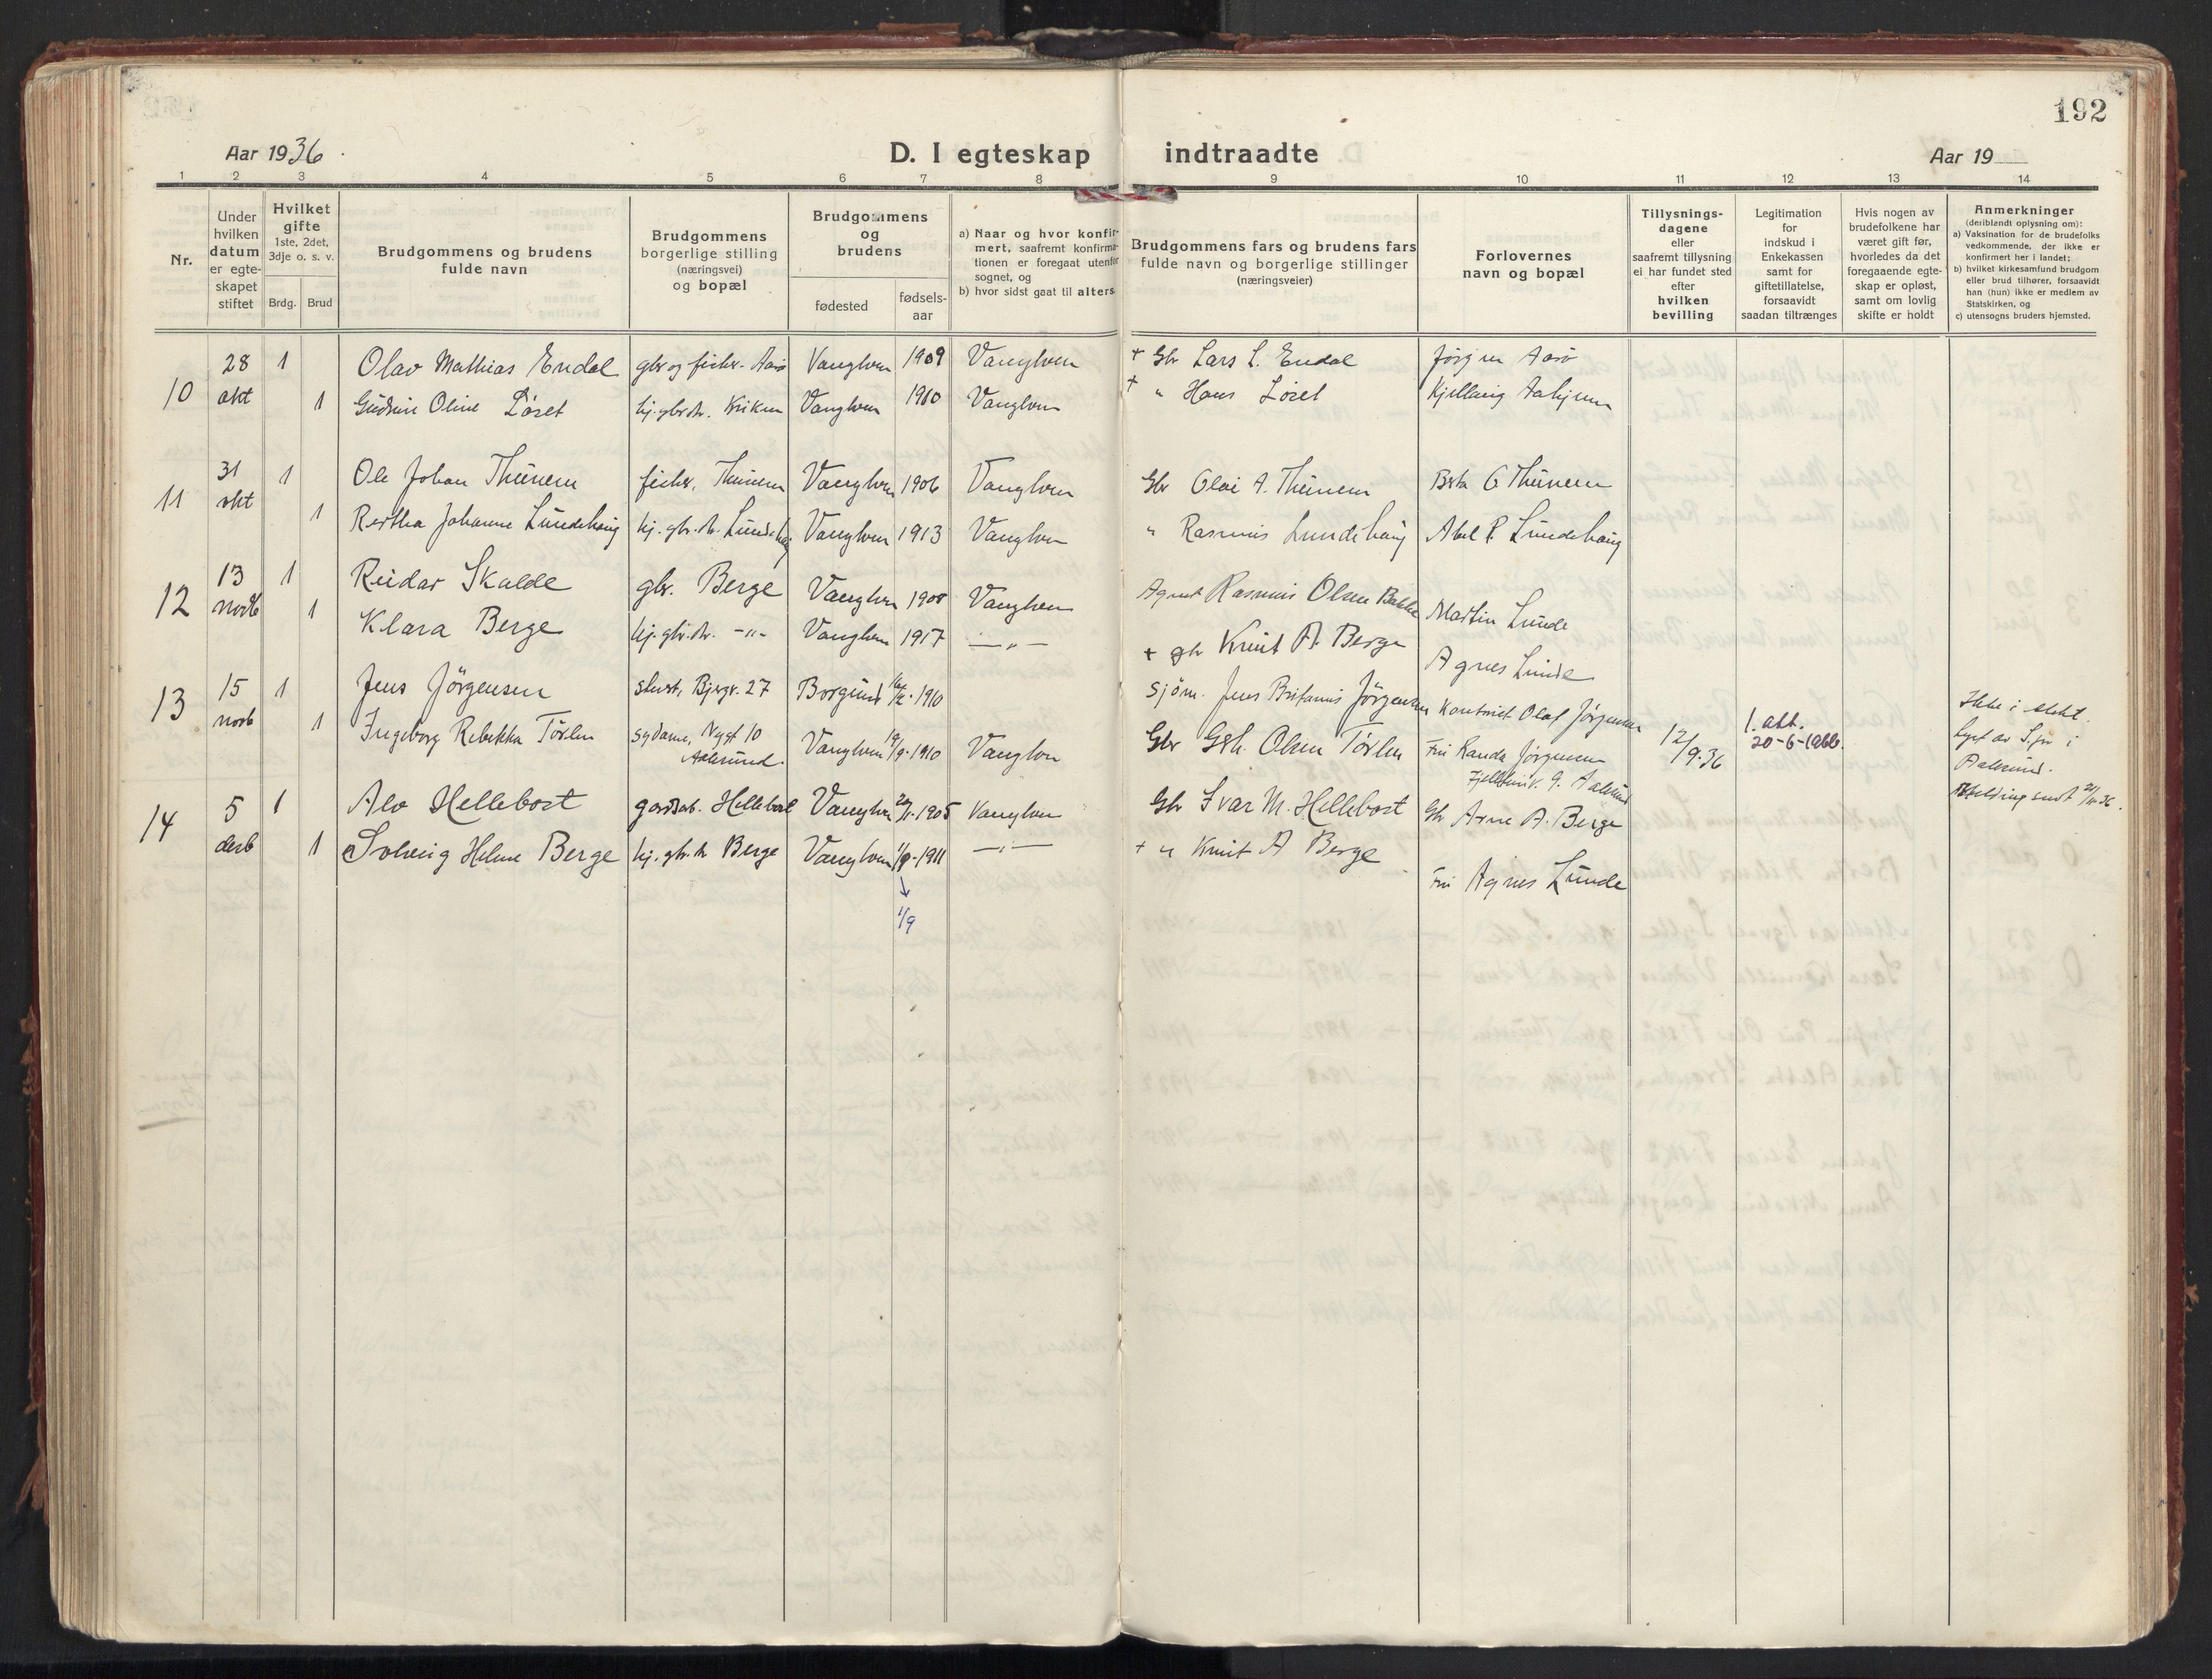 192
Aar 1936.
D. I egteskap indtraadte
Aar 19
1 2 3 4 5 6 7 8 9 10 11 12 13 14
Nr.
Under hvilken datum er egte-skapet stiftet
Hvilket gifte 1ste, 2det, 3dje o. s. v.
Brdg. Brud
Brudgommens og brudens fulde navn
Brudgommens borgerlige stilling (næringsvei) og bopæl
Brudgommens og brudens
fødested
fødsels-aar
a) Naar og hvor konfir-mert, saafremt konfirma-tionen er foregaat utenfor sognet, og
b) hvor sidst gaat til alters.
Brudgommens fars og brudens fars fulde navn og borgerlige stillinger (næringsveier)
Forlovernes navn og bopæl
Tillysnings-dagene eller saafremt tillysning ei har fundet sted efter hvilken bevilling
Legitimation for indskud i Enkekassen samt for giftetillatelse, forsaavidt saadan tiltrænges
Hvis nogen av brudefolkene har været gift før, hvorledes da det foregaaende egte-skap er opløst, samt om lovlig skifte er holdt
Anmerkninger (deriblandt oplysning om):
a) Vaksination for de brudefolks vedkommende, der ikke er konfirmert her i landet;
b) hvilket kirkesamfund brudgom eller brud tilhører, forsaavidt han (hun) ikke er medlem av Statskirken, og
c) utensogns bruders hjemsted.
10 28 okt 1 Olav Mathias Endal gbr og fisker. Aarø Vanylven 1909 Vanylven + Gbr Lars L. Endal Jørgen Aarø
1 Gudrun Oline Løset hj. gbr.dr. Kriken Vanylven 1910 Vanylven + " Hans Løset
11 31 okt 1 Ole Johan Thunem fisker, Thunem Vanylven 1906 Vanylven Gbr Olai A. Thunem O Thunem
1 Johanne Lundehaug hj. gbr.dr. Vanylven 1913 Vanylven " Rasmus Lundehaug Lundehaug
12 13 novb 1 Reidar Skalde gbr. Berge Vanylven 1908 Vanylven Agent Rasmus Olsen Bakke Martin Lunde
1 Klara Berge hj. gbr.dr. -"- Vanylven 1917 -"- + gbr Knut A. Berge Agnes Lunde
13 15 novb 1 Jens Jörgensen Bjergv. 27 Borgund 1910 sjöm. Jens Jörgensen Olaf Jörgensen
1 Ingeborg Rebekka Tørlen sydame, Nygt 10 Aalesund. Vanylven 1910 Vanylven Gbr Olsen Tørlen Fru Randa Jörgensen
12/9.36 1. att. 20-6-
Ikke i slekt. Lyst av S.pr i Aalesund. Melding sendt
14 5 desb 1 Alv Hellebost gardsarb. Hellebost Vanylven 1905 Vanylven Gbr Ivar M. Hellebost Gbr Arne A. Berge
1 Solveig Helene Berge hj. gbr.dr Berge Vanylven 1911 -"- + " Knut A Berge Fru Agnes Lunde
1/9